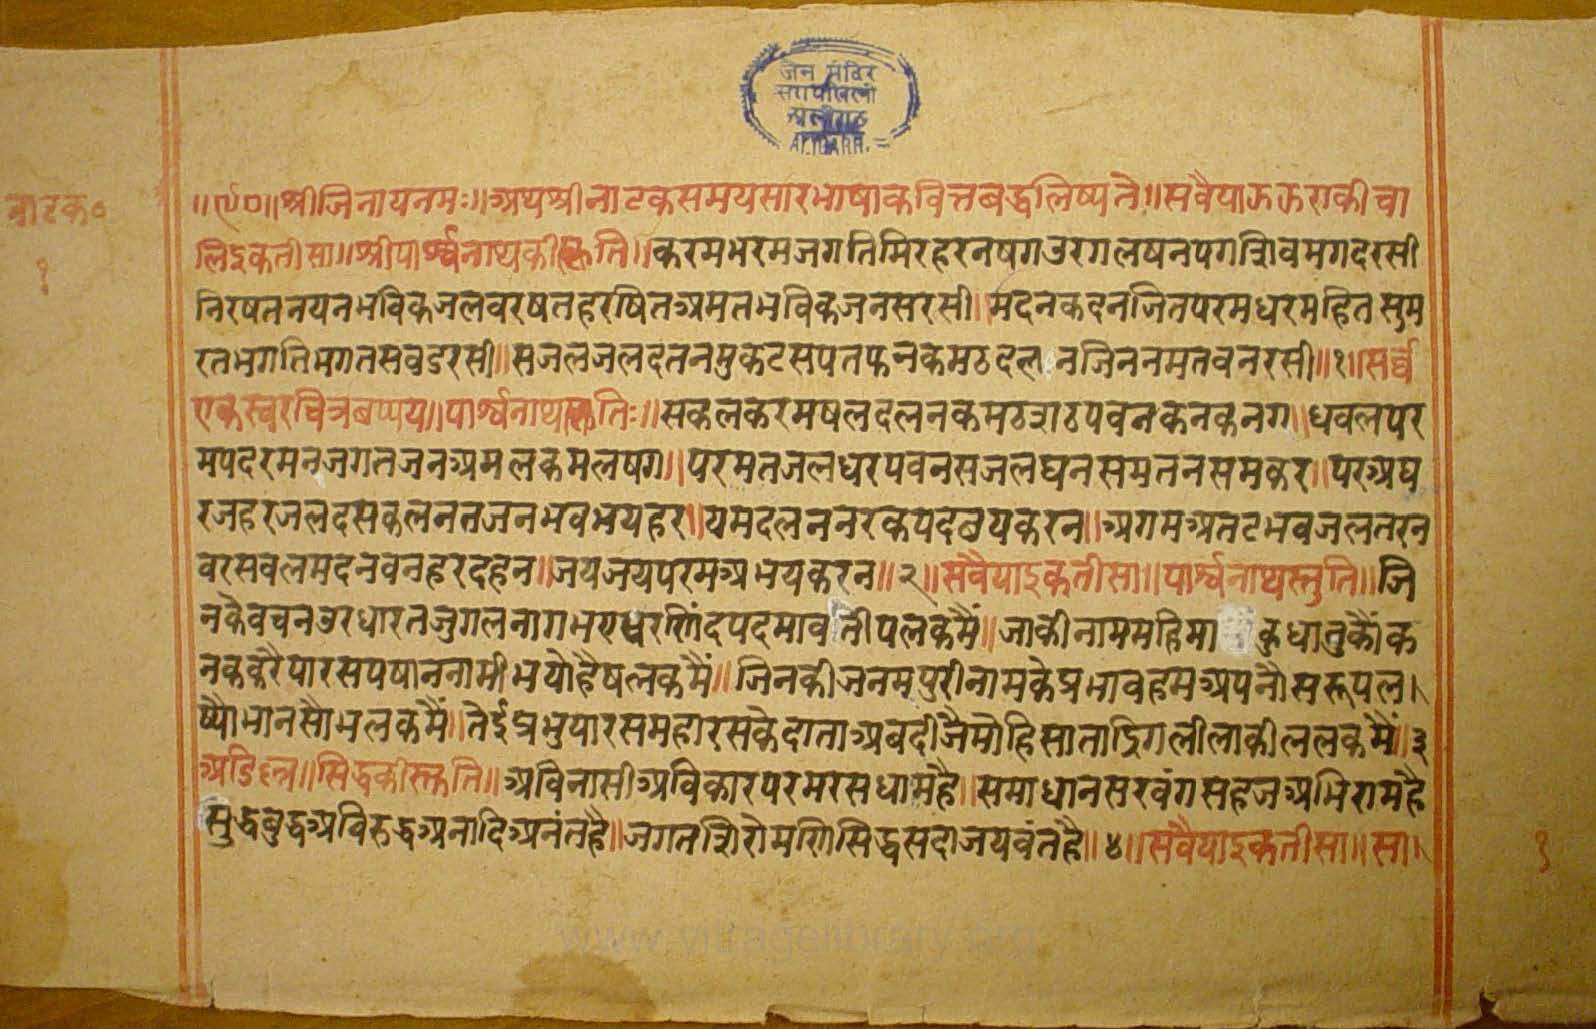 जैन मंदिर
नाटक०
१
॥ॐ॥श्रीजिनायनमः॥अथश्रीनाटकसमयसारभाषाकवित्तबद्धलिष्यते॥सवैयाऊऊराकीचा
लिइकतीसा॥श्रीपार्श्वनाथकीस्तुति॥करमभरमजगतिमिरहरनषगउरगलषनपगशिवमगदरसी
निरषतनयनभविकजलवरषतहरषितअमतभविकजनसरसी॥मदनकदनजितपरमधरमहितसुम
रतभगतिभगतसवडरसी॥सजलजलदतनमुकटसपतफनकमठदलनजिननमतवनरसी॥१॥सर्व्व
एकस्वरचित्रछप्पय॥पार्श्वनाथस्तुतिः॥सकलकरमषलदलनकमठशठपवनकनकनग॥धवलपर
मपदरमनजगतजनअमलकमलषग॥परमतजलधरपवनसजलघनसमतनसमकर॥परअघ
रजहरजलदसकलनतजनभवभयहर॥यमदलननरकपदछयकरन॥अगमअतटभवजलतरन
वरसवलमदनवनहरदहन॥जयजयपरमअभयकरन॥२॥सवैयाइकतीसा॥पार्श्वनाथस्तुति॥जि
नकैवचनउरधारतजुगलनागभएधरणिंदपदमावतीपलकमैं॥जाकीनाममहिमा कुधातुकौंक
नककरैपारसपषाननामीभयोहैषलकमैं॥जिनकीजनमपुरीनामकेप्रभावहमअपनौसरूपल
ष्यौभानसौभलकमैं॥तेईप्रभुपारसमहारसकेदाताअबदीजैमोहिसाताद्रिगलीलाकीललकमैं॥३
अडिल्ल॥सिद्धकीस्तुति॥अविनासीअविकारपरमरसधामहै॥समाधानसरवंगसहजअभिरामहै
सुद्धबुद्धअविरुद्धअनादिअनंतहै॥जगतशिरोमणिसिद्धसदाजयवंतहै॥४॥सवैयाइकतीसा॥सा
१
www.vitragelibrary.org